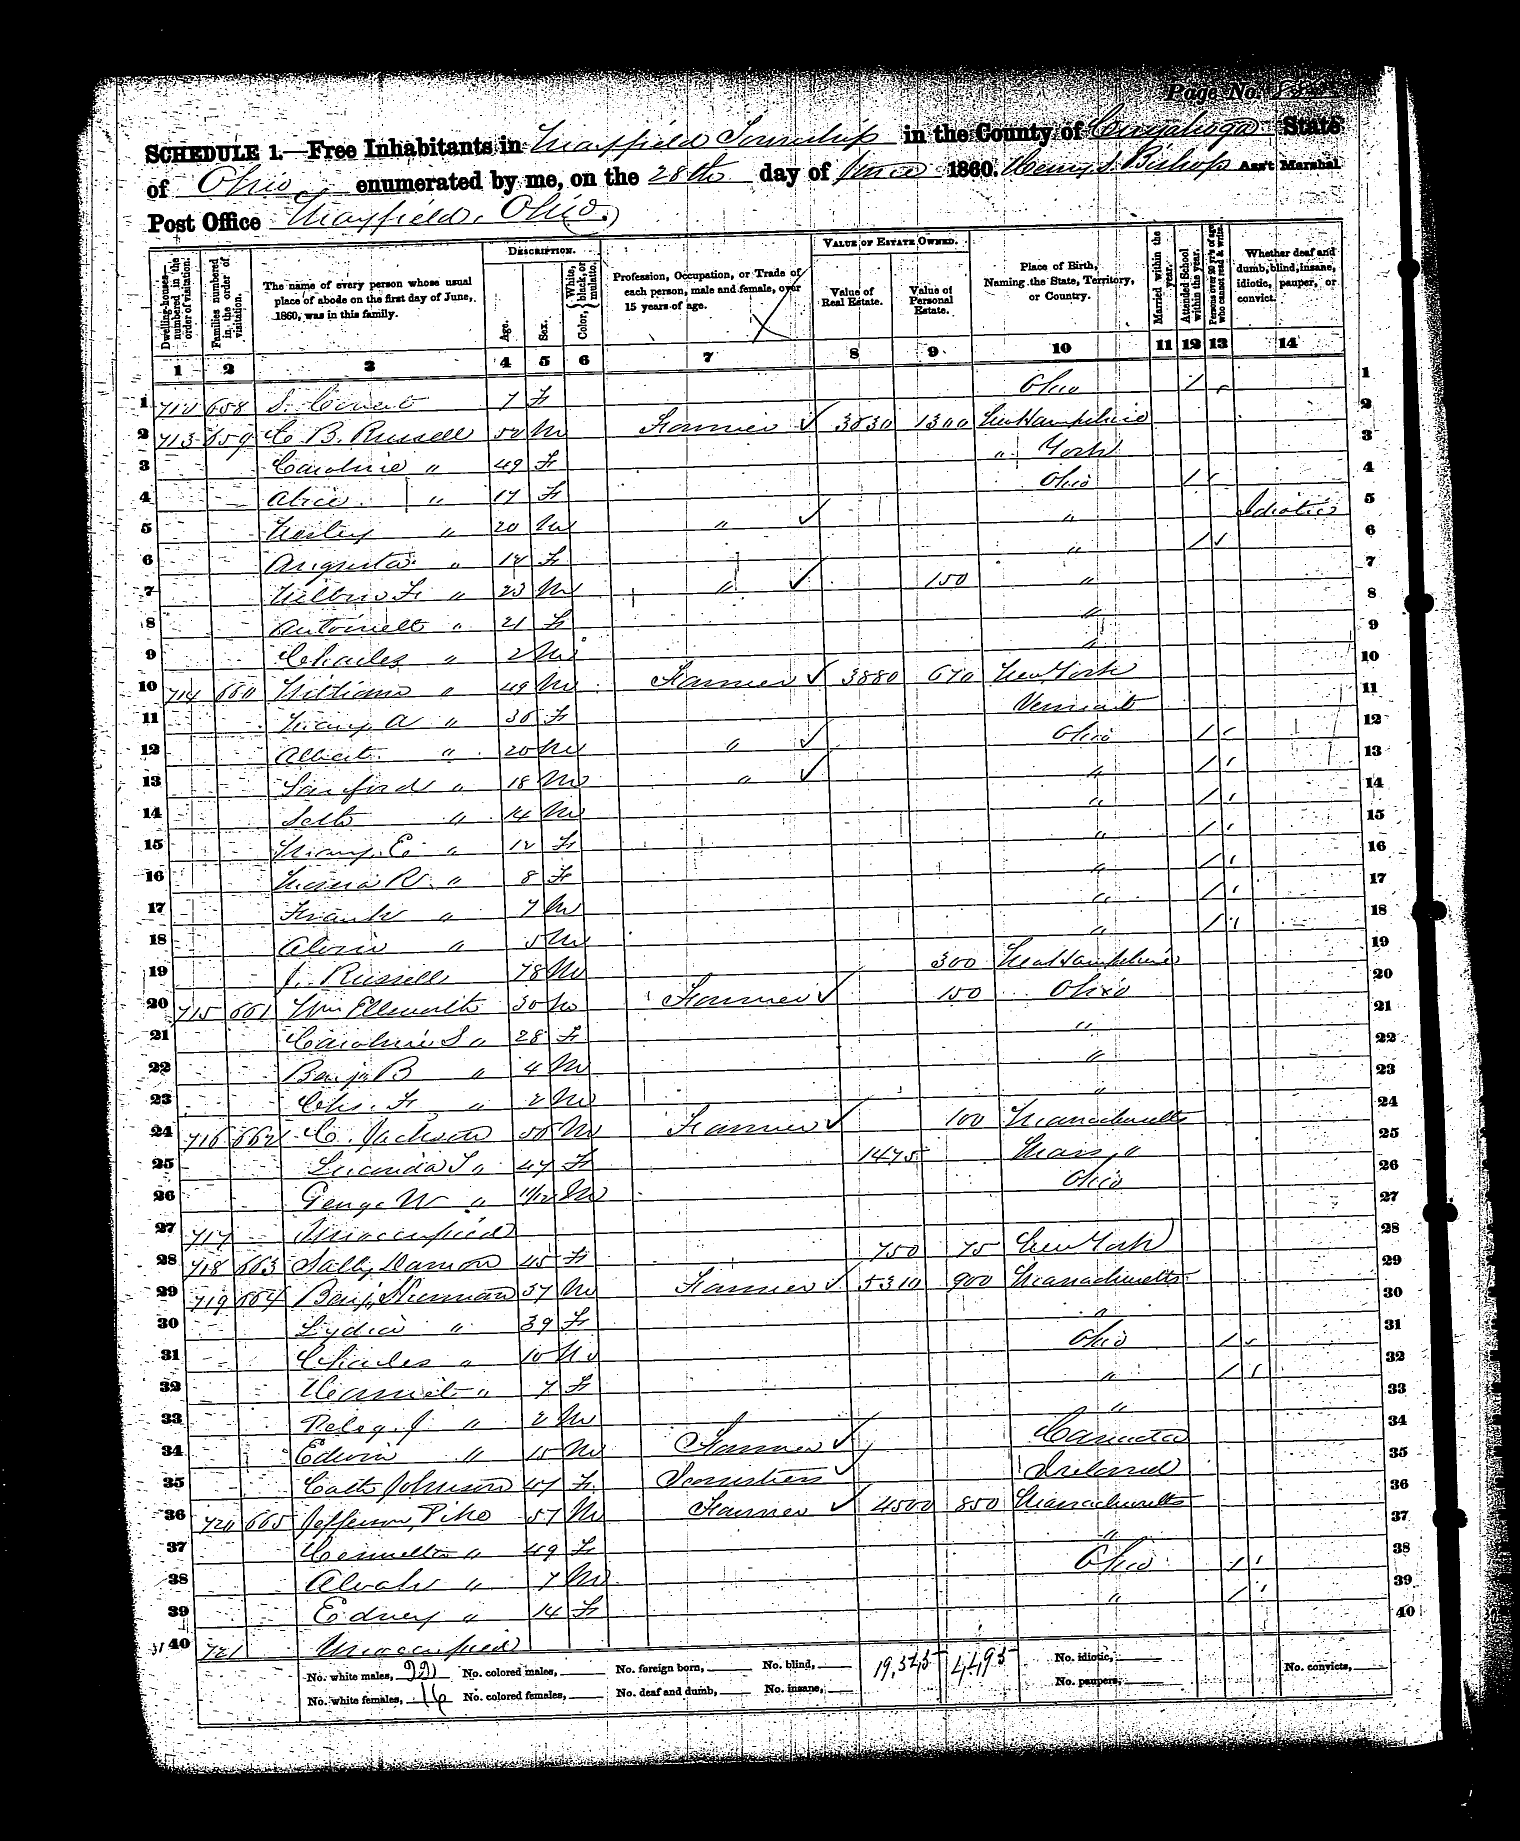 Page No.
SCHEDULE 1.—Free Inhabitants in Mayfield Township in the County of Cuyahoga State
of Ohio enumerated by me, on the 28th day of June 1860. Henry S. Bishop Ass't Marshal
Post Office Mayfield, Ohio.
Dwelling-houses—numbered in the order of visitation.
Families numbered in the order of visitation.
The name of every person whose usual place of abode on the first day of June, 1860, was in this family.
DESCRIPTION.
Age.
Sex.
Color, { White, black, or mulatto.
Profession, Occupation, or Trade of each person, male and female, over 15 years of age.
VALUE OF ESTATE OWNED.
Value of Real Estate.
Value of Personal Estate.
Place of Birth, Naming the State, Territory, or Country.
Married within the year.
Attended School within the year.
Persons over 20 y'rs of age who cannot read & write.
Whether deaf and dumb, blind, insane, idiotic, pauper, or convict.
1 2 3 4 5 6 7 8 9 10 11 12 13 14
1 712 658 S. 7 F Ohio / 1
2 713 659 C. B. Russell M Farmer ✓ 1300 New Hampshire 2
3 Caroline " 49 F " York 3
4 Alice " 17 F Ohio / 4
5 " 20 M " ✓ " Idiotic 5
6 Augusta " 12 F " / 6
7 F " 23 M " ✓ 150 " 7
8 Antoinett " 21 F " 8
9 Charles " 2 M " 9
10 714 660 William " 49 M Farmer ✓ 3880 670 New York 10
11 Mary A " F Vermont 11
12 Albert " 20 M " ✓ Ohio / 12
13 Sanford " 18 M " ✓ " / 13
14 Seth " 14 M " / 14
15 Mary E " 12 F " / 15
16 R. " 8 F " / 16
17 Frank " 7 M " / 17
18 " 5 M " / 18
19 J. Russell 78 M 300 New Hampshire 19
20 715 661 Wm Ellsworth 30 M Farmer ✓ 150 Ohio 20
21 Caroline S " 28 F " 21
22 Benj. B " 4 M " 22
23 Chs. F. " 2 M " 23
24 716 662 C. Jackson M Farmer ✓ 100 Massachusetts 24
25 Lucinda S " 47 F 1475 Mass, " 25
26 George W " 11/12 M Ohio 26
27 717 Unoccupied 27
28 718 663 Sally Damon 45 F 750 75 New York 28
29 719 664 Benj. Sherman 37 M Farmer ✓ 5310 900 Massachusetts 29
30 Lydia " 39 F " 30
31 Charles " 10 M Ohio / 31
32 Harriet " 7 F " / 32
33 Peleg J " 2 M " 33
34 Edwin " 15 M Farmer ✓ Canada 34
35 Cath Johnson 47 F Domestic ✓ Ireland 35
36 720 665 Jefferson Pike 57 M Farmer ✓ 4500 850 Massachusetts 36
37 " 49 F " 37
38 Alvah " 7 M Ohio / 38
39 Edney " 14 F " / 39
40 721 Unoccupied 40
No. white males, 22 No. colored males, No. foreign born, No. blind, 4,495 No. idiotic, No. convicts,
No. white females, 16 No. colored females, No. deaf and dumb, No. insane, No. paupers,